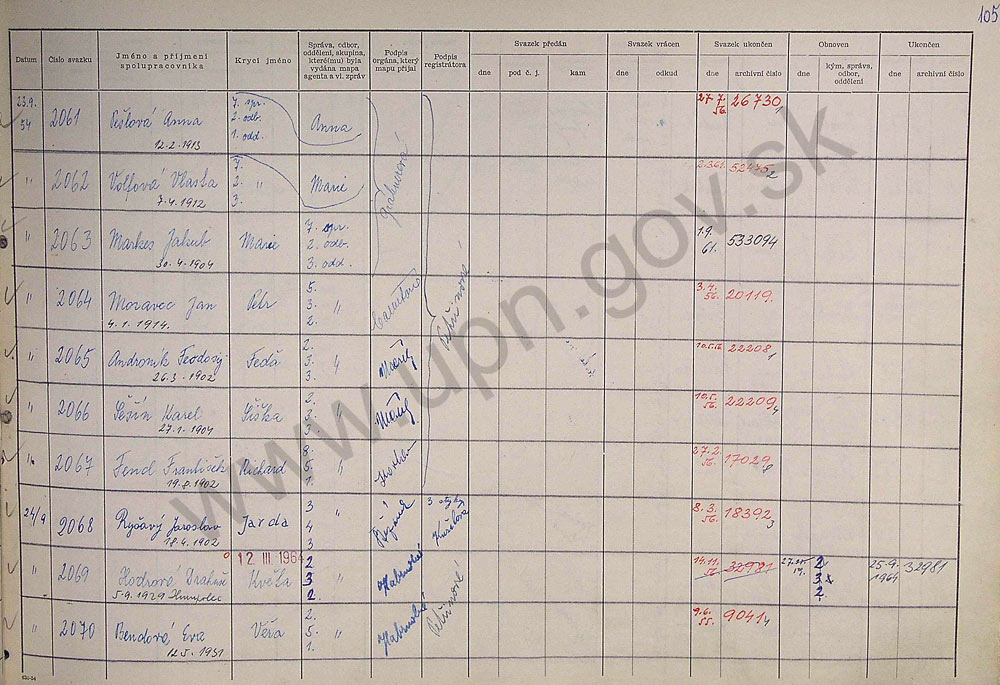 105
Datum
Číslo svazku
Jméno a příjmení spolupracovníka
Krycí jméno
Správa, odbor, oddělení, skupina, které(mu) byla vydána mapa agenta a vl. zpráv
Podpis orgána, který mapu přijal
Podpis registrátora
Svazek předán
Svazek vrácen
Svazek ukončen
Obnoven
Ukončen
dne
pod č. j.
kam
dne
odkud
dne
archivní číslo
dne
kým, správa, odbor, oddělení
dne
archivní číslo
23.9. 54 2061 Anna 7. spr. 2. odb. 1. odd. Anna 27. 7. 56. 26730 1
12.2.1913
" 2062 Volfová Vlasta 7. 2. " 3. Marie 52475 2
7.4.1912
" 2063 Markes Jakub Marie 7. spr. 2. odb. 3. odd. 1.9. 61. 533094
30.4.1904
" 2064 Moravec Jan Petr 5. 3. " 2. 3.4. 56. 20119
4.1.1914.
" 2065 Andronik Feodosij Fedá 2. 3. " 3. 10.5.56 22208 1
26.3.1902
" 2066 Karel Šiška 2. 3. " 3. 10.5. 56. 22209 4
27.1.1904
" 2067 Fencl František Richard 8. 5. " 1. 27.2. 56. 17029 8
19.8.1902
24/9 2068 Ryšavý Jaroslav Jarda 3 4 " 3 8.3. 56. 18392 3
18.4.1902
12 III 1964
" 2069 Květa 2 3 " 2. 14.11. 56 32981 2 3 2. 25.9. 1964 32981
5.9.1929 Humpolec
" 2070 Bendová Eva Věra 2. 5. " 1. 9.6. 55. 9041 4
12.5.1931
www.upn.gov.sk